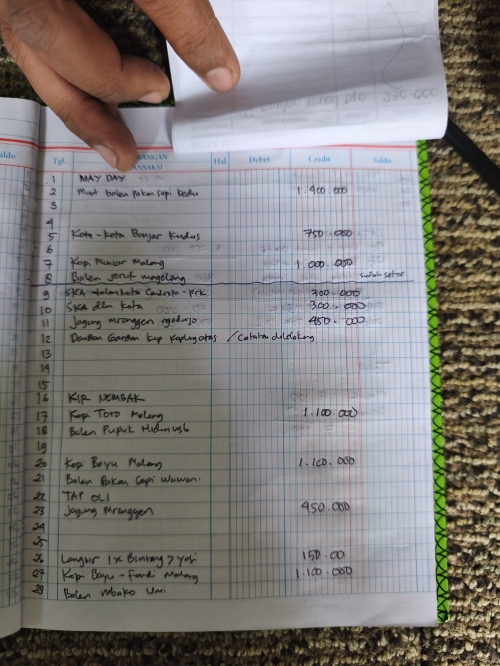 Saldo
Tgl. RANGAN ANSAKSI Hal Debet Credit Saldo
1 MAY DAY
2 Muat balen pakan sapi kedu 1.400.000
3
4
5 Kota-kota Banjar Kudus 750.000
6
7 Kopi Malang 1.000.000
8 Balen jeruk magelang sudah setor
9 SKA dalam kota - prk 300.000
10 SKA dlm kota 300.000
11 Jagung Mranggen 450.000
12 Garden kap / Catatan
13
14
15
16 KIR NEMBAK
17 Kopi TORO Malang 1.100.000
18 Balen Pupuk
19
20 Kopi Bayu Malang 1.100.000
21 Balen Pakan Sapi Wawan.
22 TAP OLI
23 Jagung Mranggen 450.000
24
25
26 Langsir 1x Bintang > Yosi 150.00
27 Kopi Bayu - Fandi Malang 1.100.000
28 Balen Mbako Umi